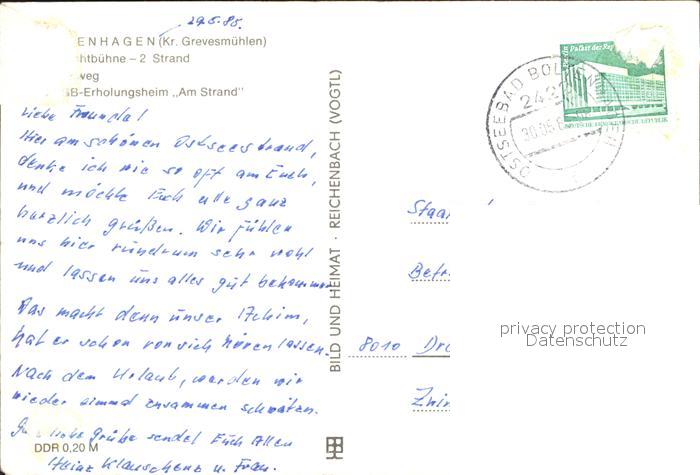 29.5.85.
ENHAGEN (Kr. Grevesmühlen)
htbühne – 2 Strand
weg
GB-Erholungsheim „Am Strand"
Liebe Freunde!
Hier am schönen Ostseestrand,
denke ich wie so oft an Euch,
und möchte Euch alle ganz
herzlich grüßen. Wir fühlen
uns hier rundrum sehr wohl
und lassen uns alles gut bekommen.
Was macht denn unser Achim,
hat er schon von sich hören lassen.
Nach dem Urlaub, werden wir
wieder einmal zusammen schwätzen.
Grüße sendet Euch Allen
Heinz u. Frau.
DDR 0,20 M
BILD UND HEIMAT · REICHENBACH (VOGTL)
Palast der Rep
DEUTSCHE DEMOKRATISCHE REPUBLIK
OSTSEEBAD BOL
242
30.05.
Staa
Betr.
8010 Dr
privacy protection
Datenschutz